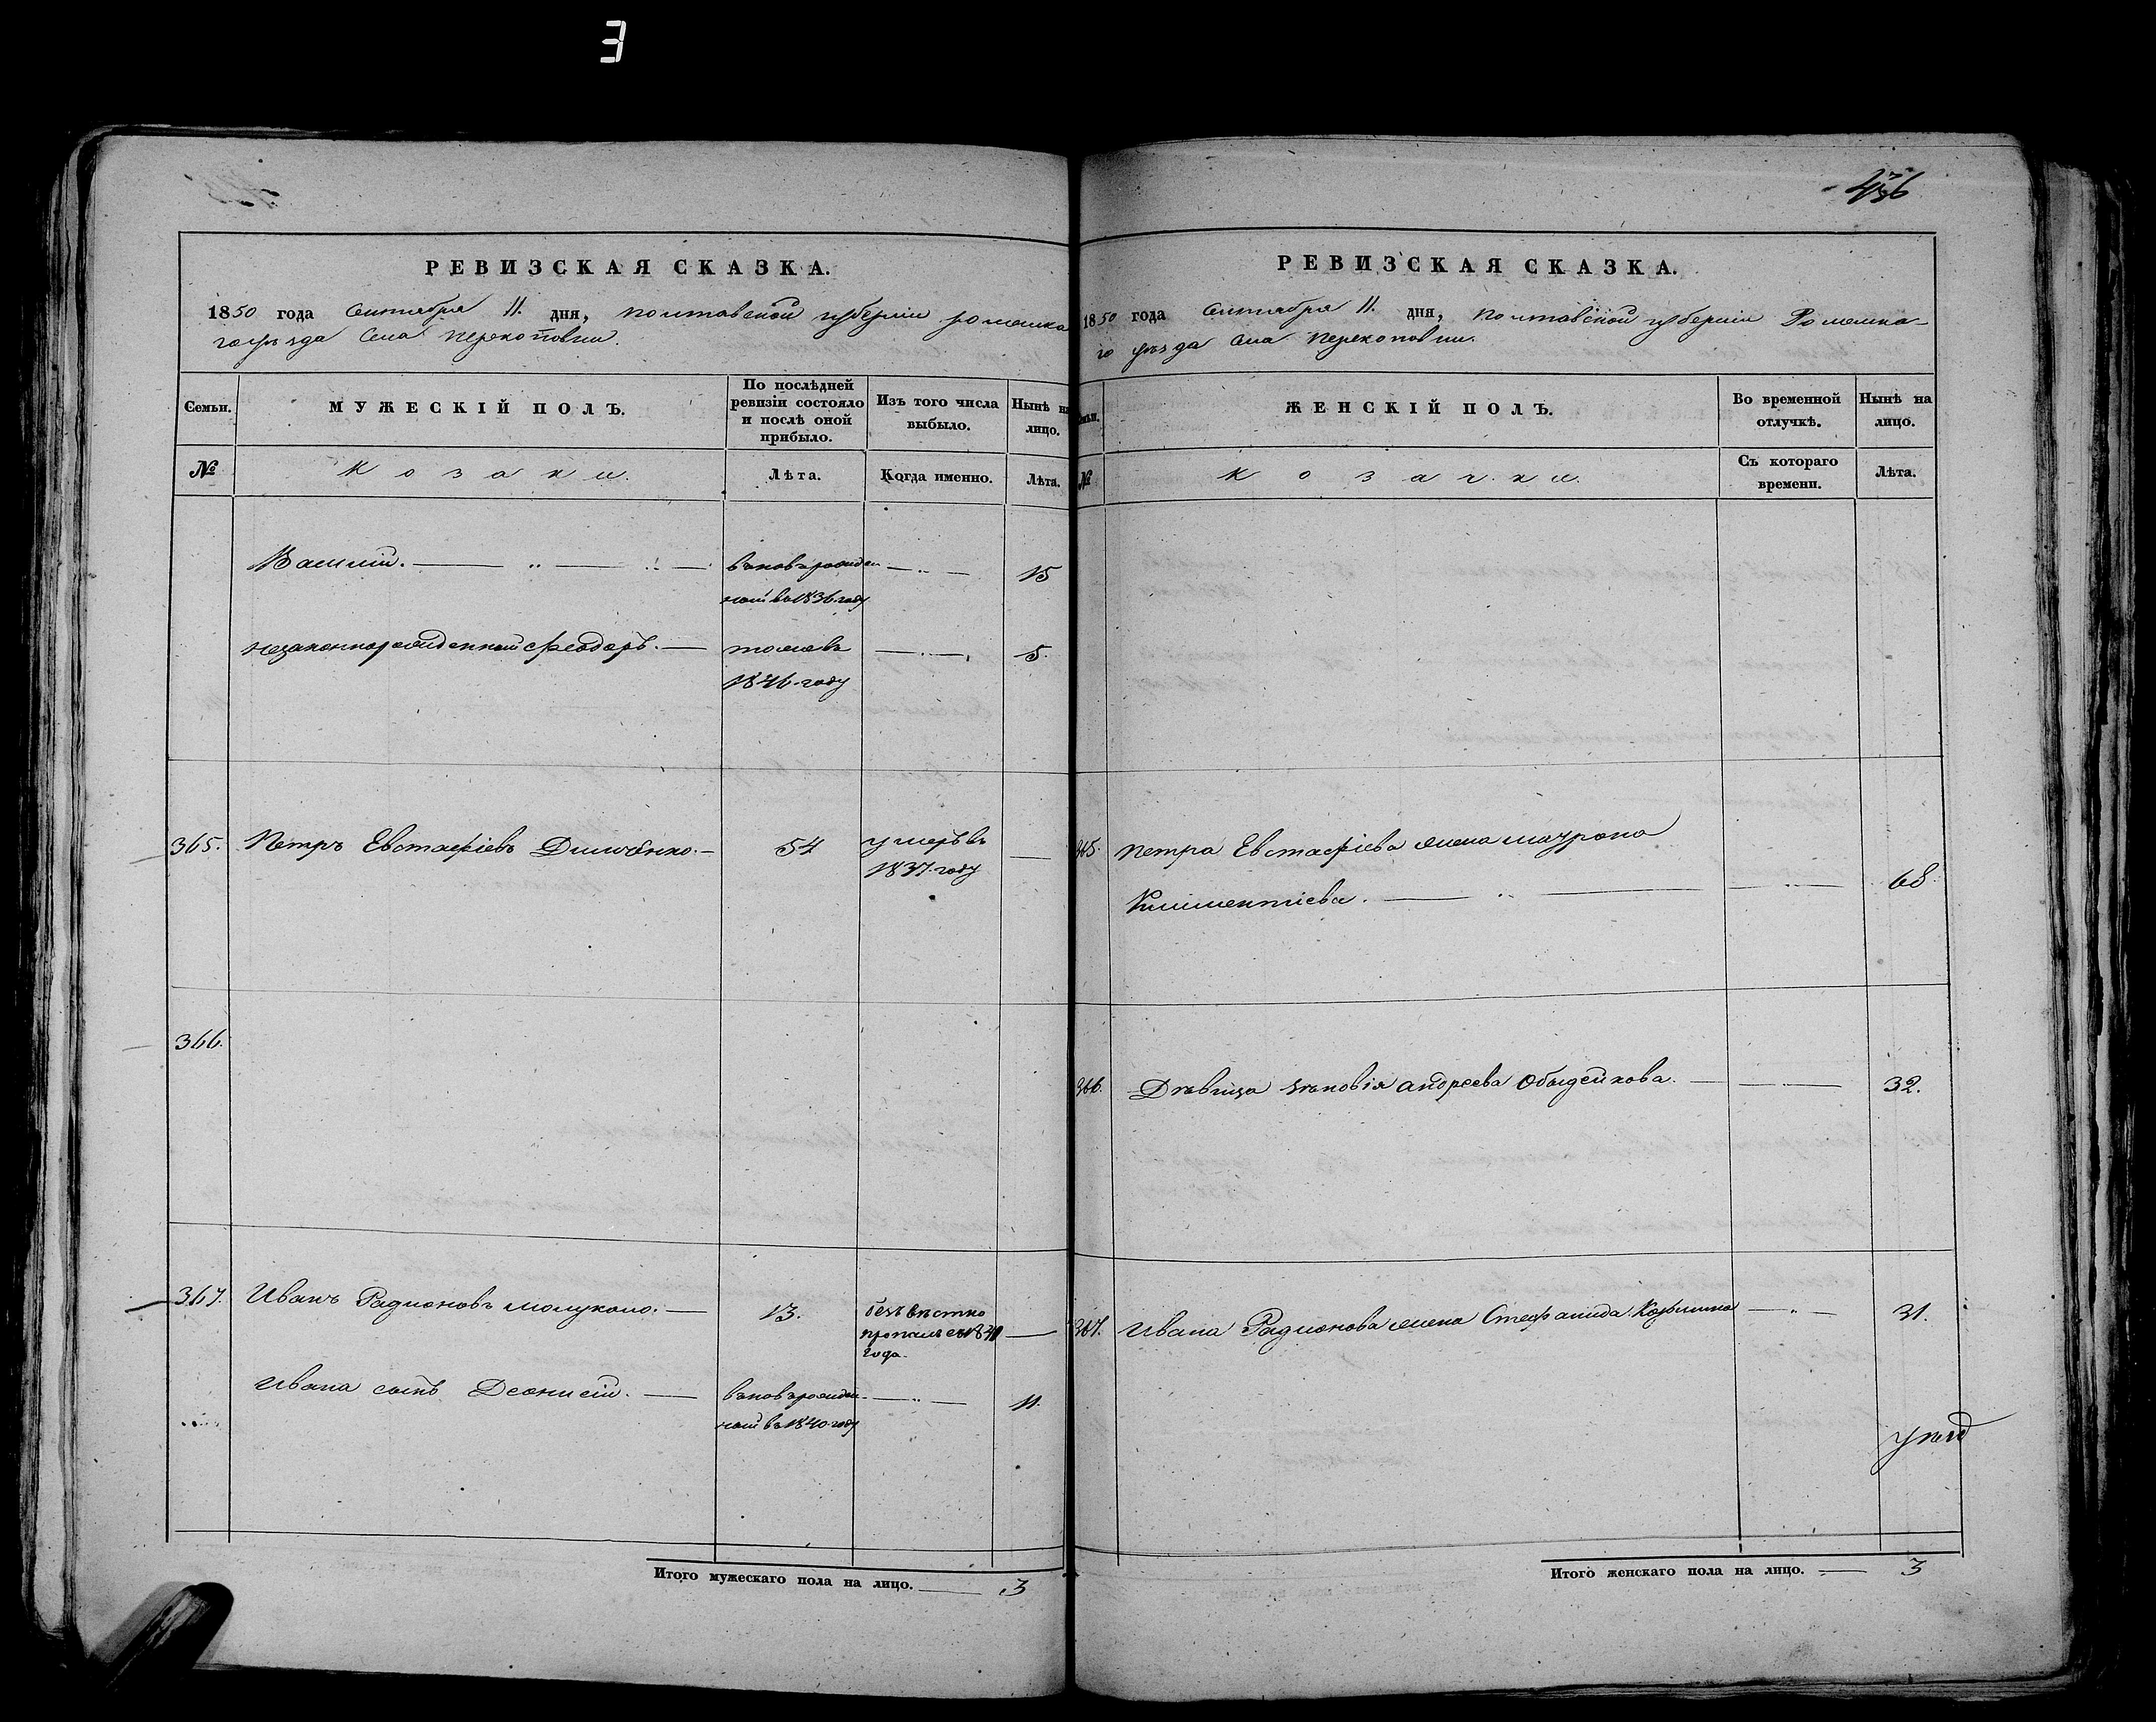 3
РЕВИЗСКАЯ СКАЗКА.
1850 года Сентября 11. дня, Полтавской губернии роменска
го уѣзда Села Перекоповки.
Семьи.
МУЖЕСКІЙ ПОЛЪ.
По послѣдней ревизіи состояло и послѣ оной прибыло.
Изъ того числа выбыло.
Нынѣ на лицо.
№
Козаки.
Лѣта.
Когда именно.
Лѣта.
Василий. вновърожден 15
ный въ 1836 году
незаконнорожденный Феодоръ. тожъ въ 5.
1846 году
365. Петръ Евстафіевъ 54 умеръ въ
1837 году
366.
367. Иванъ Радионовъ 13. безъ вѣстно
пропалъ съ
года.
Ивана сынъ Деонисій. вновърожден 11.
ный въ 1840 году
Итого мужескаго пола на лицо. 3
436
РЕВИЗСКАЯ СКАЗКА.
1850 года Сентября 11. дня, Полтавской губернии Роменска-
го уѣзда Села Перекоповки.
Семьи.
ЖЕНСКІЙ ПОЛЪ.
Во временной отлучкѣ.
Нынѣ на лицо.
№
Козачки.
Съ котораго времени.
Лѣта.
365. Петра Евстафіева жена
Климентіева. 68
366. Дѣвица Зѣновія Андреева 32.
367. Ивана Радионова жена Стефанида 31.
Итого женскаго пола на лицо. 3